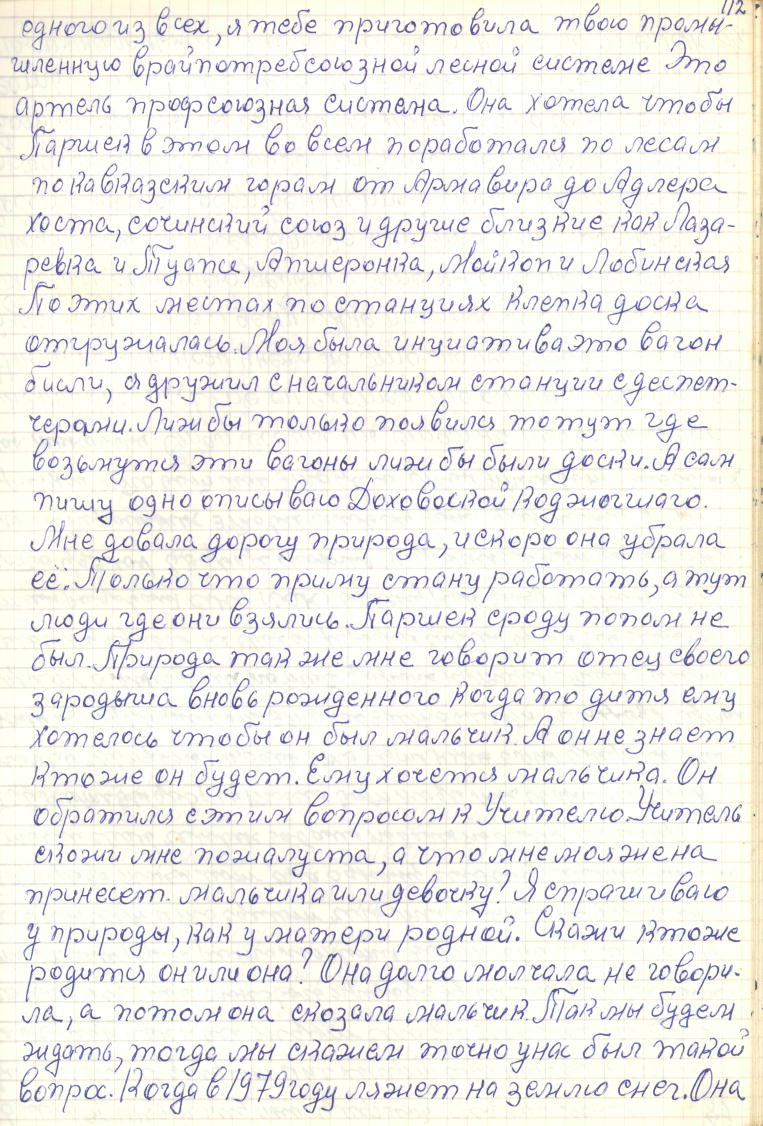 112
одного из всех, я тебе приготовила твою промы-
шленную врайпотребсоюзной лесной системе Это
артель профсоюзная система. Она хотела чтобы
Паршек в этом во всем поработался по лесам
по Кавказским горам от Армавира до Адлера
хоста, сочинский союз и другие близкие как Лаза-
ревка и Туапсе, Апшеронка, Мойкоп и Лобинская
По этих местах по станциях клепка доска
отгружалась. Моя была инициатива это вагон
били, я дружил с начальником станции с деспет-
черами. Лижбы только появился то тут где
возьмутся эти вагоны лижбы были доски. А сам
пишу одно описываю Доховской
Мне довала дорогу природа, искоро она убрала
её. Только что приму стану работать, а тут
люди где они взялись. Паршек сроду попом не
был. Природа так же мне говорит отец своего
зародыша вновь рожденного когда то дитя ему
хотелось чтобы он был мальчик. А он не знает
кто же он будет. Ему хочется мальчика. Он
обратился с этим вопросом к Учителю. Учитель
скожи мне пожалуста, а что мне моя жена
принесет. мальчика или девочку? Я спрашиваю
у природы, как у матери родной. Скажи кто же
родится он или она? Она долго молчала не говори-
ла, а потом она скозала мальчик. Так мы будем
ждать, тогда мы скажем точно у нас был такой
вопрос. Когда в 1979 году ляжет на землю снег. Она